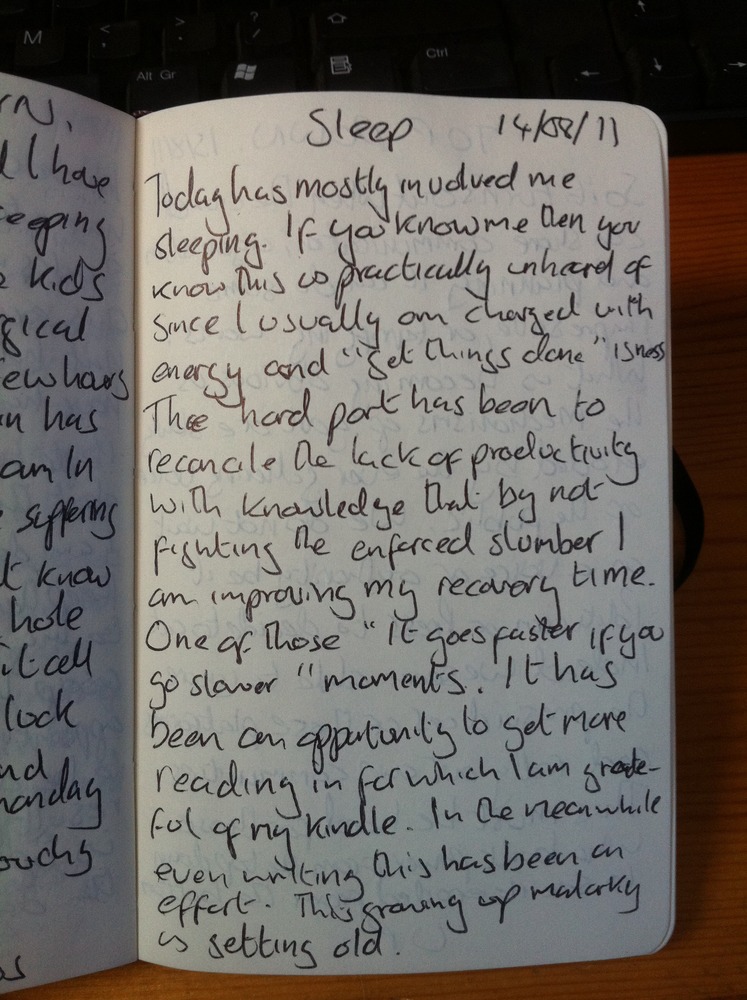 M
< ,
> .
? /
Alt Gr
Ctrl
Sleep 14/08/11
Today has mostly involved me
sleeping. If you know me then you
know this is practically unheard of
since I usually am charged with
energy and "get things done" isness
The hard part has been to
reconcile the lack of productivity
with knowledge that by not
fighting the enforced slumber I
am improving my recovery time.
One of those "It goes faster if you
go slower" moments. It has
been an opportunity to get more
reading in for which I am grate-
ful of my kindle. In the meanwhile
even writing this has been an
effort. This growing up malarky
is getting old.
I have
eeping
kids
gical
ew hours
has
am In
suffering
know
hole
it cell
lock
nd